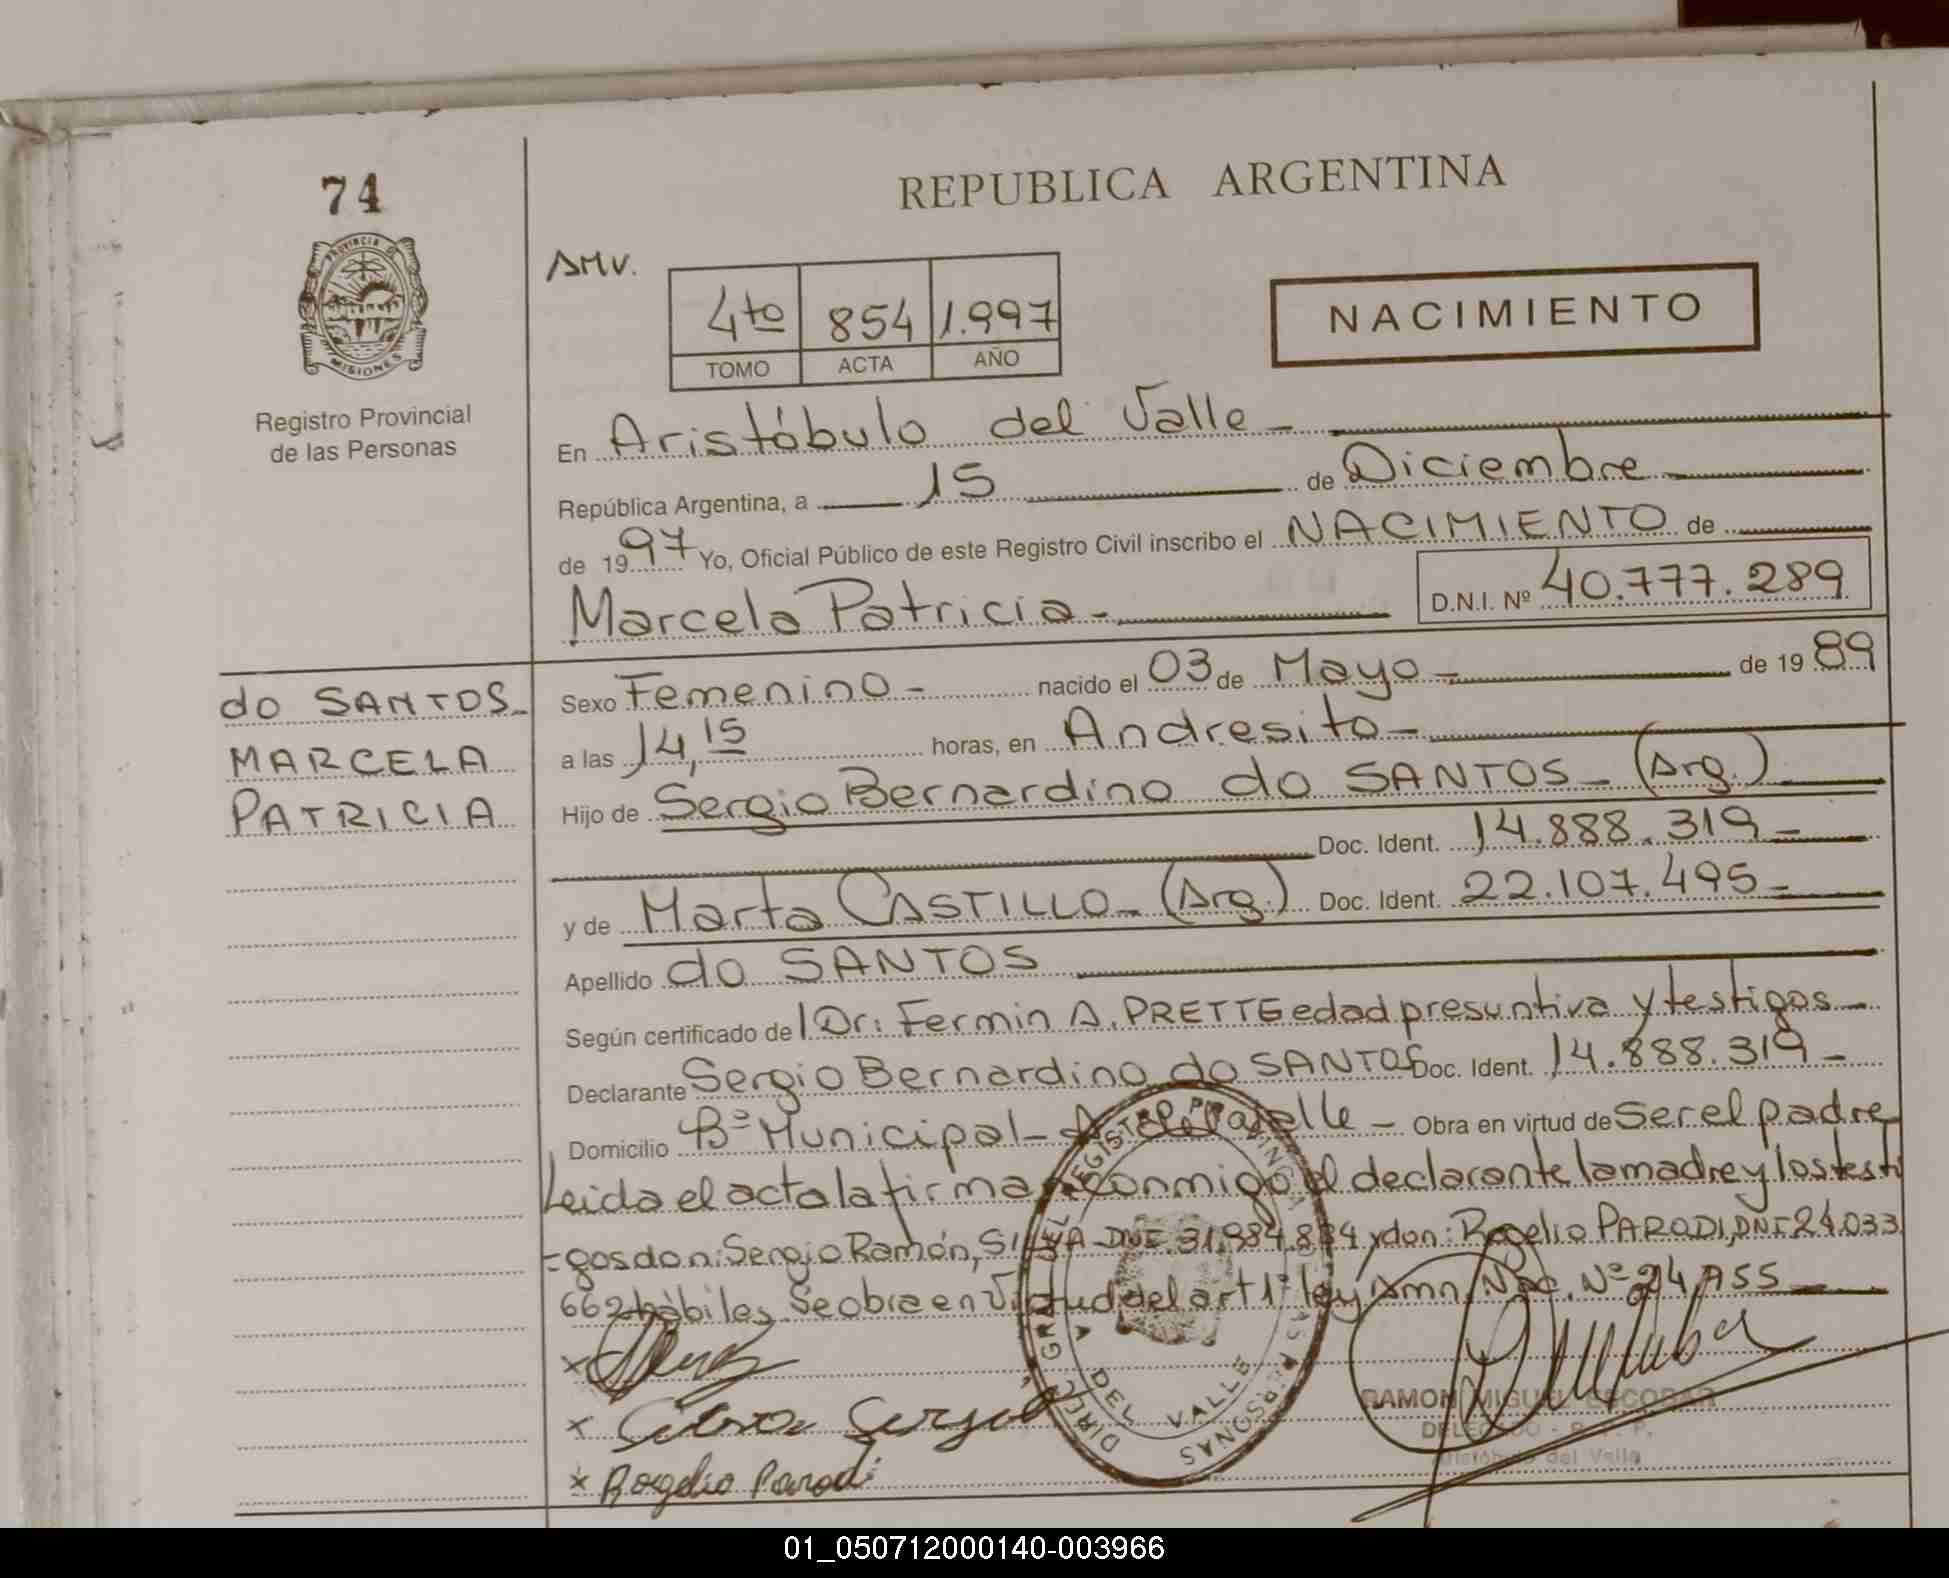 74
PROVINCIA DE
MISIONES
Registro Provincial
de las Personas
REPUBLICA ARGENTINA
AMV.
4to 854 1.997
TOMO ACTA AÑO
NACIMIENTO
En Aristóbulo del Valle -
República Argentina, a 15 de Diciembre
de 1997 Yo, Oficial Público de este Registro Civil inscribo el NACIMIENTO de
Marcela Patricia - D.N.I. Nº 40.777.289
do SANTOS
MARCELA
PATRICIA
Sexo Femenino - nacido el 03 de Mayo - de 1989
a las 14,15 horas, en Andresito -
Hijo de Sergio Bernardino do SANTOS - (Arg.)
Doc. Ident. 14.888.319 -
y de Marta CASTILLO - (Arg.) Doc. Ident. 22.107.495 -
Apellido do SANTOS
Según certificado de Dr: Fermin A. PRETTE edad presuntiva y testigos -
Declarante Sergio Bernardino do SANTOS Doc. Ident. 14.888.319 -
Domicilio Bº Municipal - del Valle - Obra en virtud de Ser el padre
Leida el acta la firman conmigo el declarante la madre y los testi
-gos don: Sergio Ramón, SILVA DNI. 31.984.834 y don: Rogelio PARODI, DNI 24.033
662 hàbiles. Se obra en Virtud del art 1º ley Amn. Nac. Nº 24.755
DIRECC. GRAL DEL REGISTRO PROVINCIAL
DE LAS PERSONAS
A. DEL VALLE
x
x Silva Sergio
x Rogelio Parodi
RAMON MIGUEL ESCOBAR
DELEGADO - R. P. P.
Aristóbulo del Valle
01_050712000140-003966